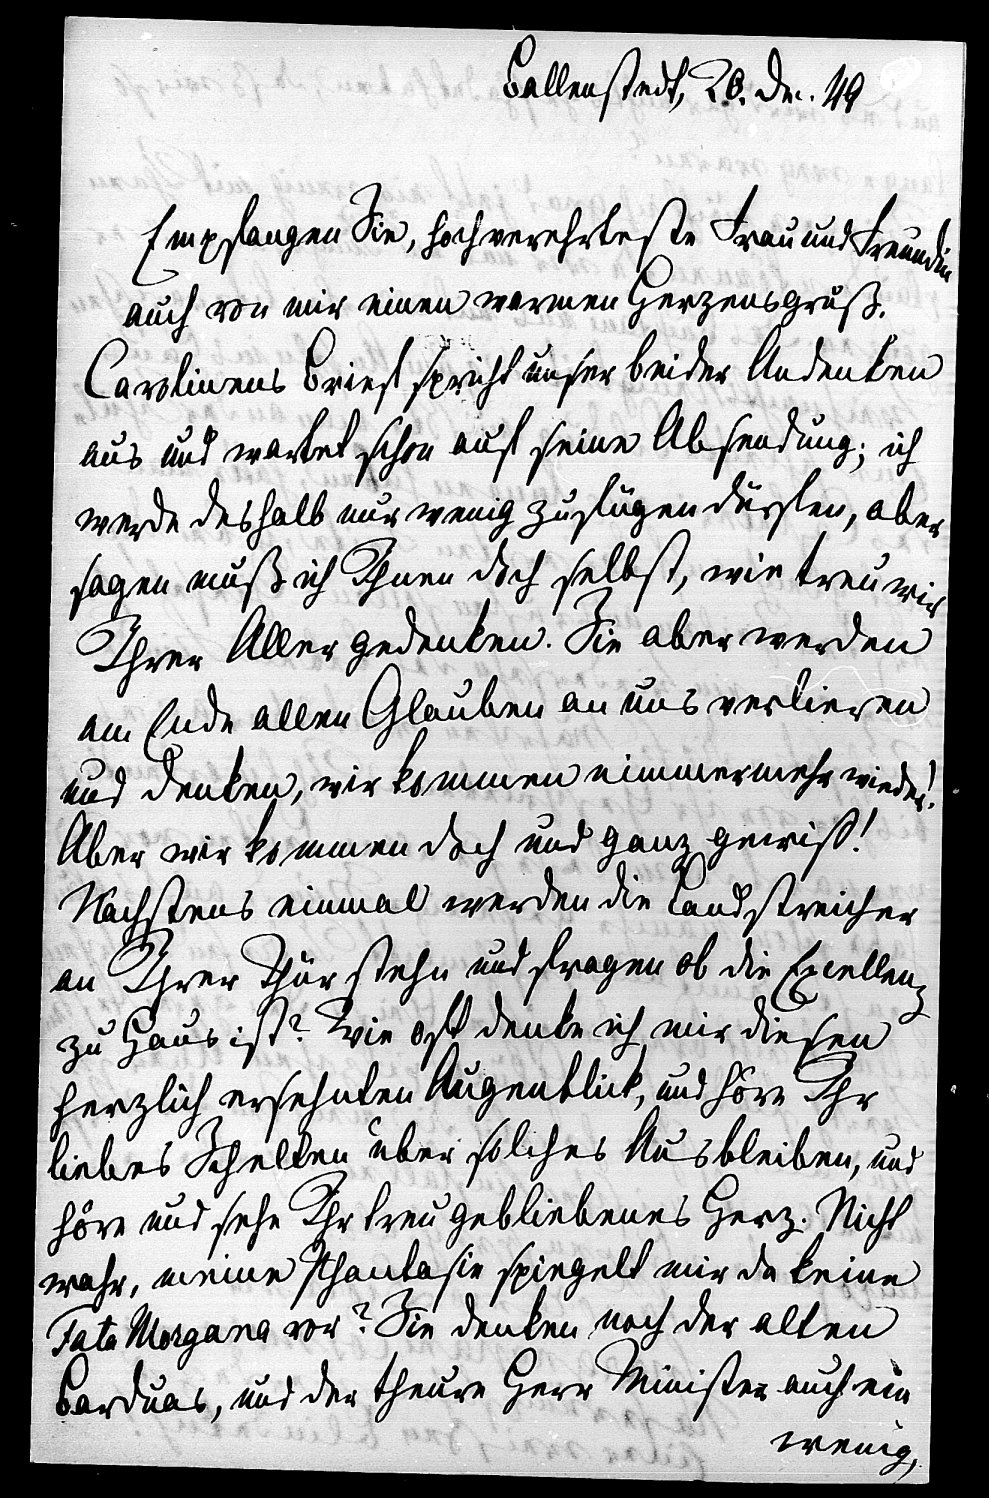 Ballenstedt, 28. Dec. 49
Empfangen Sie, hochverehrteste Frau und Freundin
auch von mir einen warmen Herzensgruß.
Carolinens Brief spricht unser beider Andenken
aus und wartet schon auf seine Absendung; ich
werde deshalb nur wenig zufügen dürfen, aber
sagen muß ich Ihnen doch selbst, wie treu wir
Ihrer Aller gedenken. Sie aber werden
am Ende allen Glauben an uns verlieren
und denken, wir kommen nimmermehr wieder!
Aber wir kommen doch und ganz gewiß!
Nächstens einmal werden die Landstreicher
an Ihrer Thür stehn und fragen ob die Excellenz
zu Haus ist? Wie oft denke ich mir diesen
herzlich ersehnten Augenblick, und höre Ihr
liebes Schelten über solches Ausbleiben, und
höre und sehe Ihr treu gebliebenes Herz. Nicht
wahr, meine Phantasie spiegelt mir da keine
Fata Morgana vor? Sie denken noch der alten
Barduas, und der theure Herr Minister auch ein
wenig,